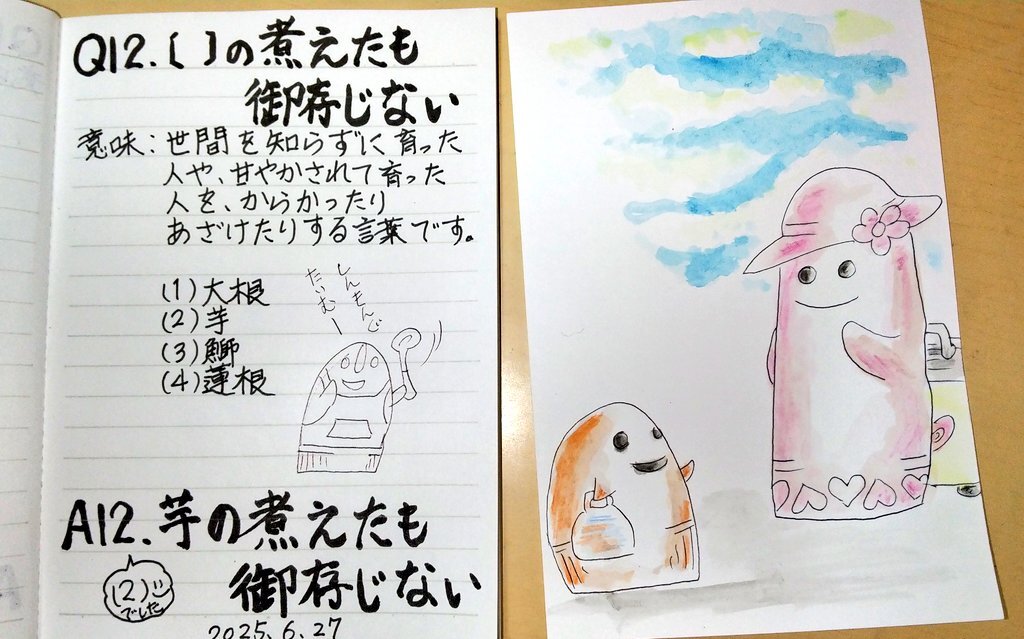 Q12.〔 〕の煮えたも
御存じない
意味：世間を知らずに育った
人や、甘やかされて育った
人を、からかったり
あざけたりする言葉です。
(1)大根
(2)芋
(3)鰤
(4)蓮根
しんもんじ
たいむー
A12.芋の煮えたも
御存じない
(2)
でした
2025.6.27